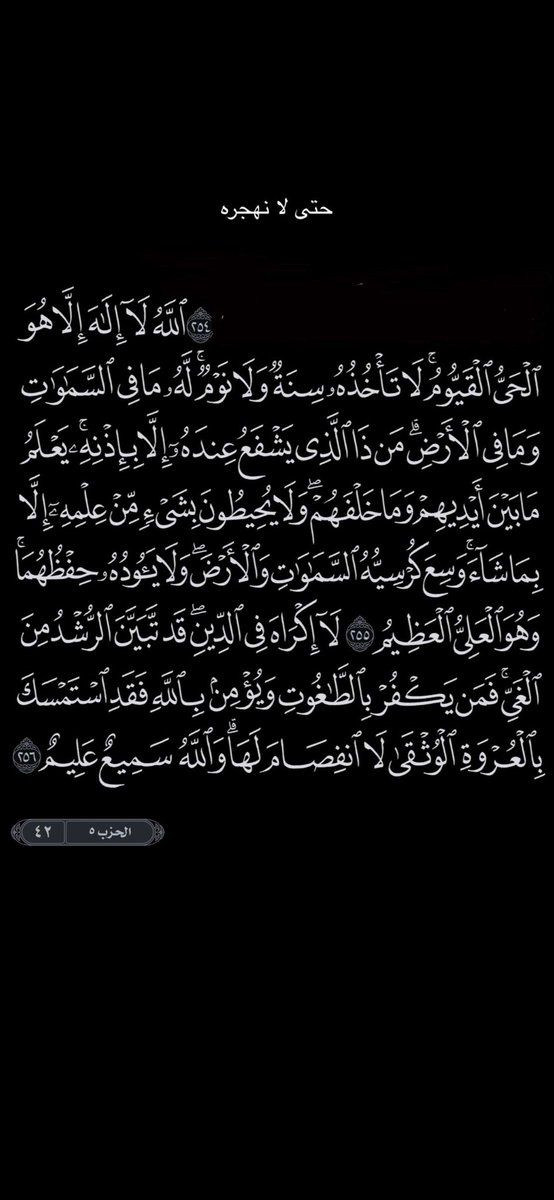 حتى لا نهجره
٢٥٤ ٱللَّهُ لَآ إِلَٰهَ إِلَّا هُوَ
ٱلْحَىُّ ٱلْقَيُّومُ ۚ لَا تَأْخُذُهُۥ سِنَةٌ وَلَا نَوْمٌ ۚ لَّهُۥ مَا فِى ٱلسَّمَٰوَٰتِ
وَمَا فِى ٱلْأَرْضِ ۗ مَن ذَا ٱلَّذِى يَشْفَعُ عِندَهُۥٓ إِلَّا بِإِذْنِهِۦ ۚ يَعْلَمُ
مَا بَيْنَ أَيْدِيهِمْ وَمَا خَلْفَهُمْ ۖ وَلَا يُحِيطُونَ بِشَىْءٍ مِّنْ عِلْمِهِۦٓ إِلَّا
بِمَا شَآءَ ۚ وَسِعَ كُرْسِيُّهُ ٱلسَّمَٰوَٰتِ وَٱلْأَرْضَ ۖ وَلَا يَـُٔودُهُۥ حِفْظُهُمَا ۚ
وَهُوَ ٱلْعَلِىُّ ٱلْعَظِيمُ ٢٥٥ لَآ إِكْرَاهَ فِى ٱلدِّينِ ۖ قَد تَّبَيَّنَ ٱلرُّشْدُ مِنَ
ٱلْغَىِّ ۚ فَمَن يَكْفُرْ بِٱلطَّٰغُوتِ وَيُؤْمِنۢ بِٱللَّهِ فَقَدِ ٱسْتَمْسَكَ
بِٱلْعُرْوَةِ ٱلْوُثْقَىٰ لَا ٱنفِصَامَ لَهَا ۗ وَٱللَّهُ سَمِيعٌ عَلِيمٌ ٢٥٦
الحزب ٥ ٤٢